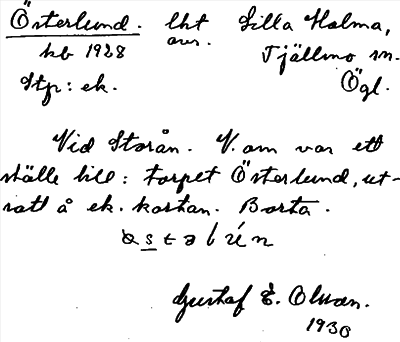 Österlund. lht Lilla Malma,
kb 1928 avs. Tjällmo sn.
Stp: ek. Ögl.
Vid Storån. V. om var ett
ställe till: torpet Österlund, ut-
satt å ek. kartan. Borta.
Gustaf E. Olsson.
1930